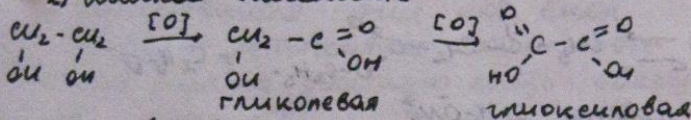 CH2 - CH2 [O] CH2 - C =O [O] O C - C =O
OH OH OH OH HO OH
гликолевая глиоксиловая